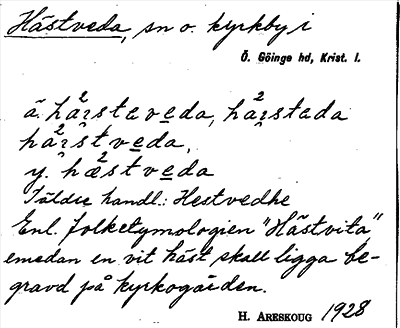 Hästveda, sn o. kyrkby i
Ö. Göinge hd, Krist. l.
ä. hä²rstaveda, hä²rstada
hä²rstveda,
y. hæ²stveda
I äldre handl.: Hestvedhe
Enl. folketymologien "Hästvita",
emedan en vit häst skall ligga be-
gravd på kyrkogården.
H. ARESKOUG 1928